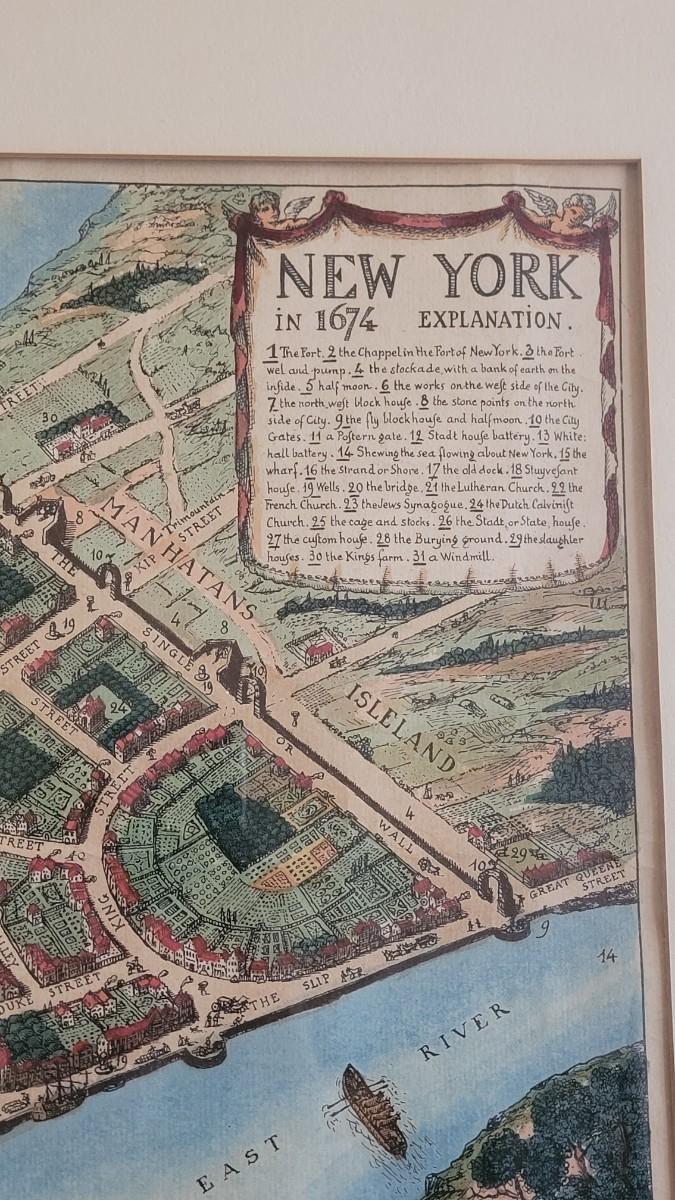 NEW YORK
in 1674 EXPLANATION.
1 The Fort. 2 the Chappel in the Fort of New York. 3 the Fort
wel and pump. 4 the stockade, with a bank of earth on the
inside. 5 half moon. 6 the works on the west side of the City.
7 the north west block house. 8 the stone points on the north
side of City. 9 the fly blockhouse and halfmoon. 10 the City
Gates. 11 a Postern gate. 12 Stadt house battery. 13 White:
hall battery. 14 Shewing the sea flowing about New York. 15 the
wharf. 16 the Strand or Shore. 17 the old dock. 18 Stuyvesant
house. 19 Wells. 20 the bridge. 21 the Lutheran Church. 22 the
French Church. 23 the Jews Synagogue. 24 the Dutch Calvinist
Church. 25 the cage and stocks. 26 the Stadt, or State, house.
27 the custom house. 28 the Burying ground. 29 the slaughter
houses. 30 the Kings farm. 31 a Windmill.
STREET
30
8
MANHATANS
Trimountain
STREET
THE
10
KIP
4
8
STREET
19
SINGLE
19
10
STREET
24
ISLELAND
OR
STREET
4
WALL
STREET
10
29
GREAT QUEENE
STREET
KING
9
14
DUKE STREET
THE SLIP
19
EAST RIVER